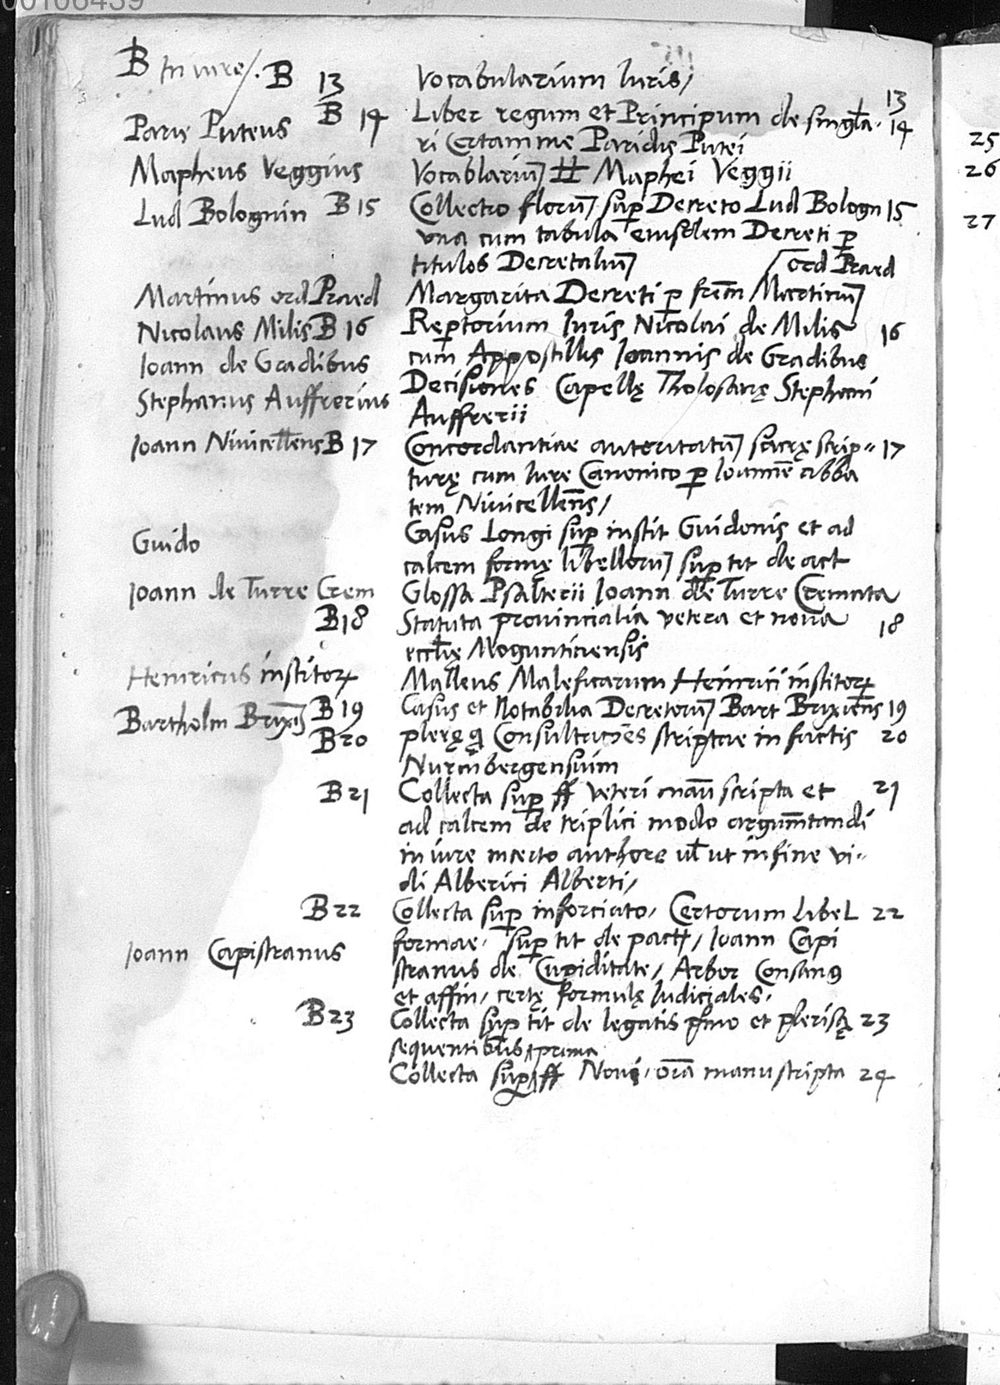 00106439
B In iure/. B 13 Vocabularium Iuris/ 13
Paris Puteus B 14 Liber regum et Principum de singla- 14
ri Certamine Paridis Putei
Mapheus Veggius Vocablariũ ff Maphei Veggii
Lud Bolognin B 15 Collectio florũ sup Decreto Lud Bologn 15
vna cum tabula eiusdem Decreti p
titulos Decretaliũ
ord Praed
Martinus ord Praed Margarita Decreti p frem Martinũ
Nicolaus Milis B 16 Repertorium Iuris Nicolai de Milis 16
Ioann de Gradibus cum Appostillis Ioannis de Gradibus
Stephanus Auffrerius Decisiones Capellę Tholosanę Stephani
Auffrerii
Ioann Niuicellens B 17 Concordantiae autoritatũ sacrę scrip= 17
turę cum Iure Canonico p Ioannē abba
tem Niuicellens/
Guido Casus Longi sup instit Guidonis et ad
calcem formę libellorũ sup tit de act
Ioann de Turre Crem Glossa Psalterii Ioann de Turre Cremata
B 18 Statuta prouincialia vetera et noua 18
ecclię Moguntinensis
Heinricus institor Malleus Maleficarum Heinrici institor
Bartholm Brixiẽ B 19 Casus et Notabilia Decretorũ Bart Brixiens 19
B 20 pleręq Consultationes scriptae in factis 20
Nurmbergensium
B 21 Collecta sup ff veteri manu scripta et 21
ad calcem de triplici modo argumtandi
in iure incerto authore vl ut in fine vi=
di Alberici Alberti/
B 22 Collecta sup inforciato, Certorum Libel 22
formae, sup tit de pact, Ioann Capi
Ioann Capistranus stranus de Cupiditate, Arbor Consang
et affin, certę formulę Iudiciales,
B 23 Collecta sup tit de legatis pmo et plerisq 23
sequentibus prima
Collecta sup ff Noui, ora manu scripta 24
25
26
27